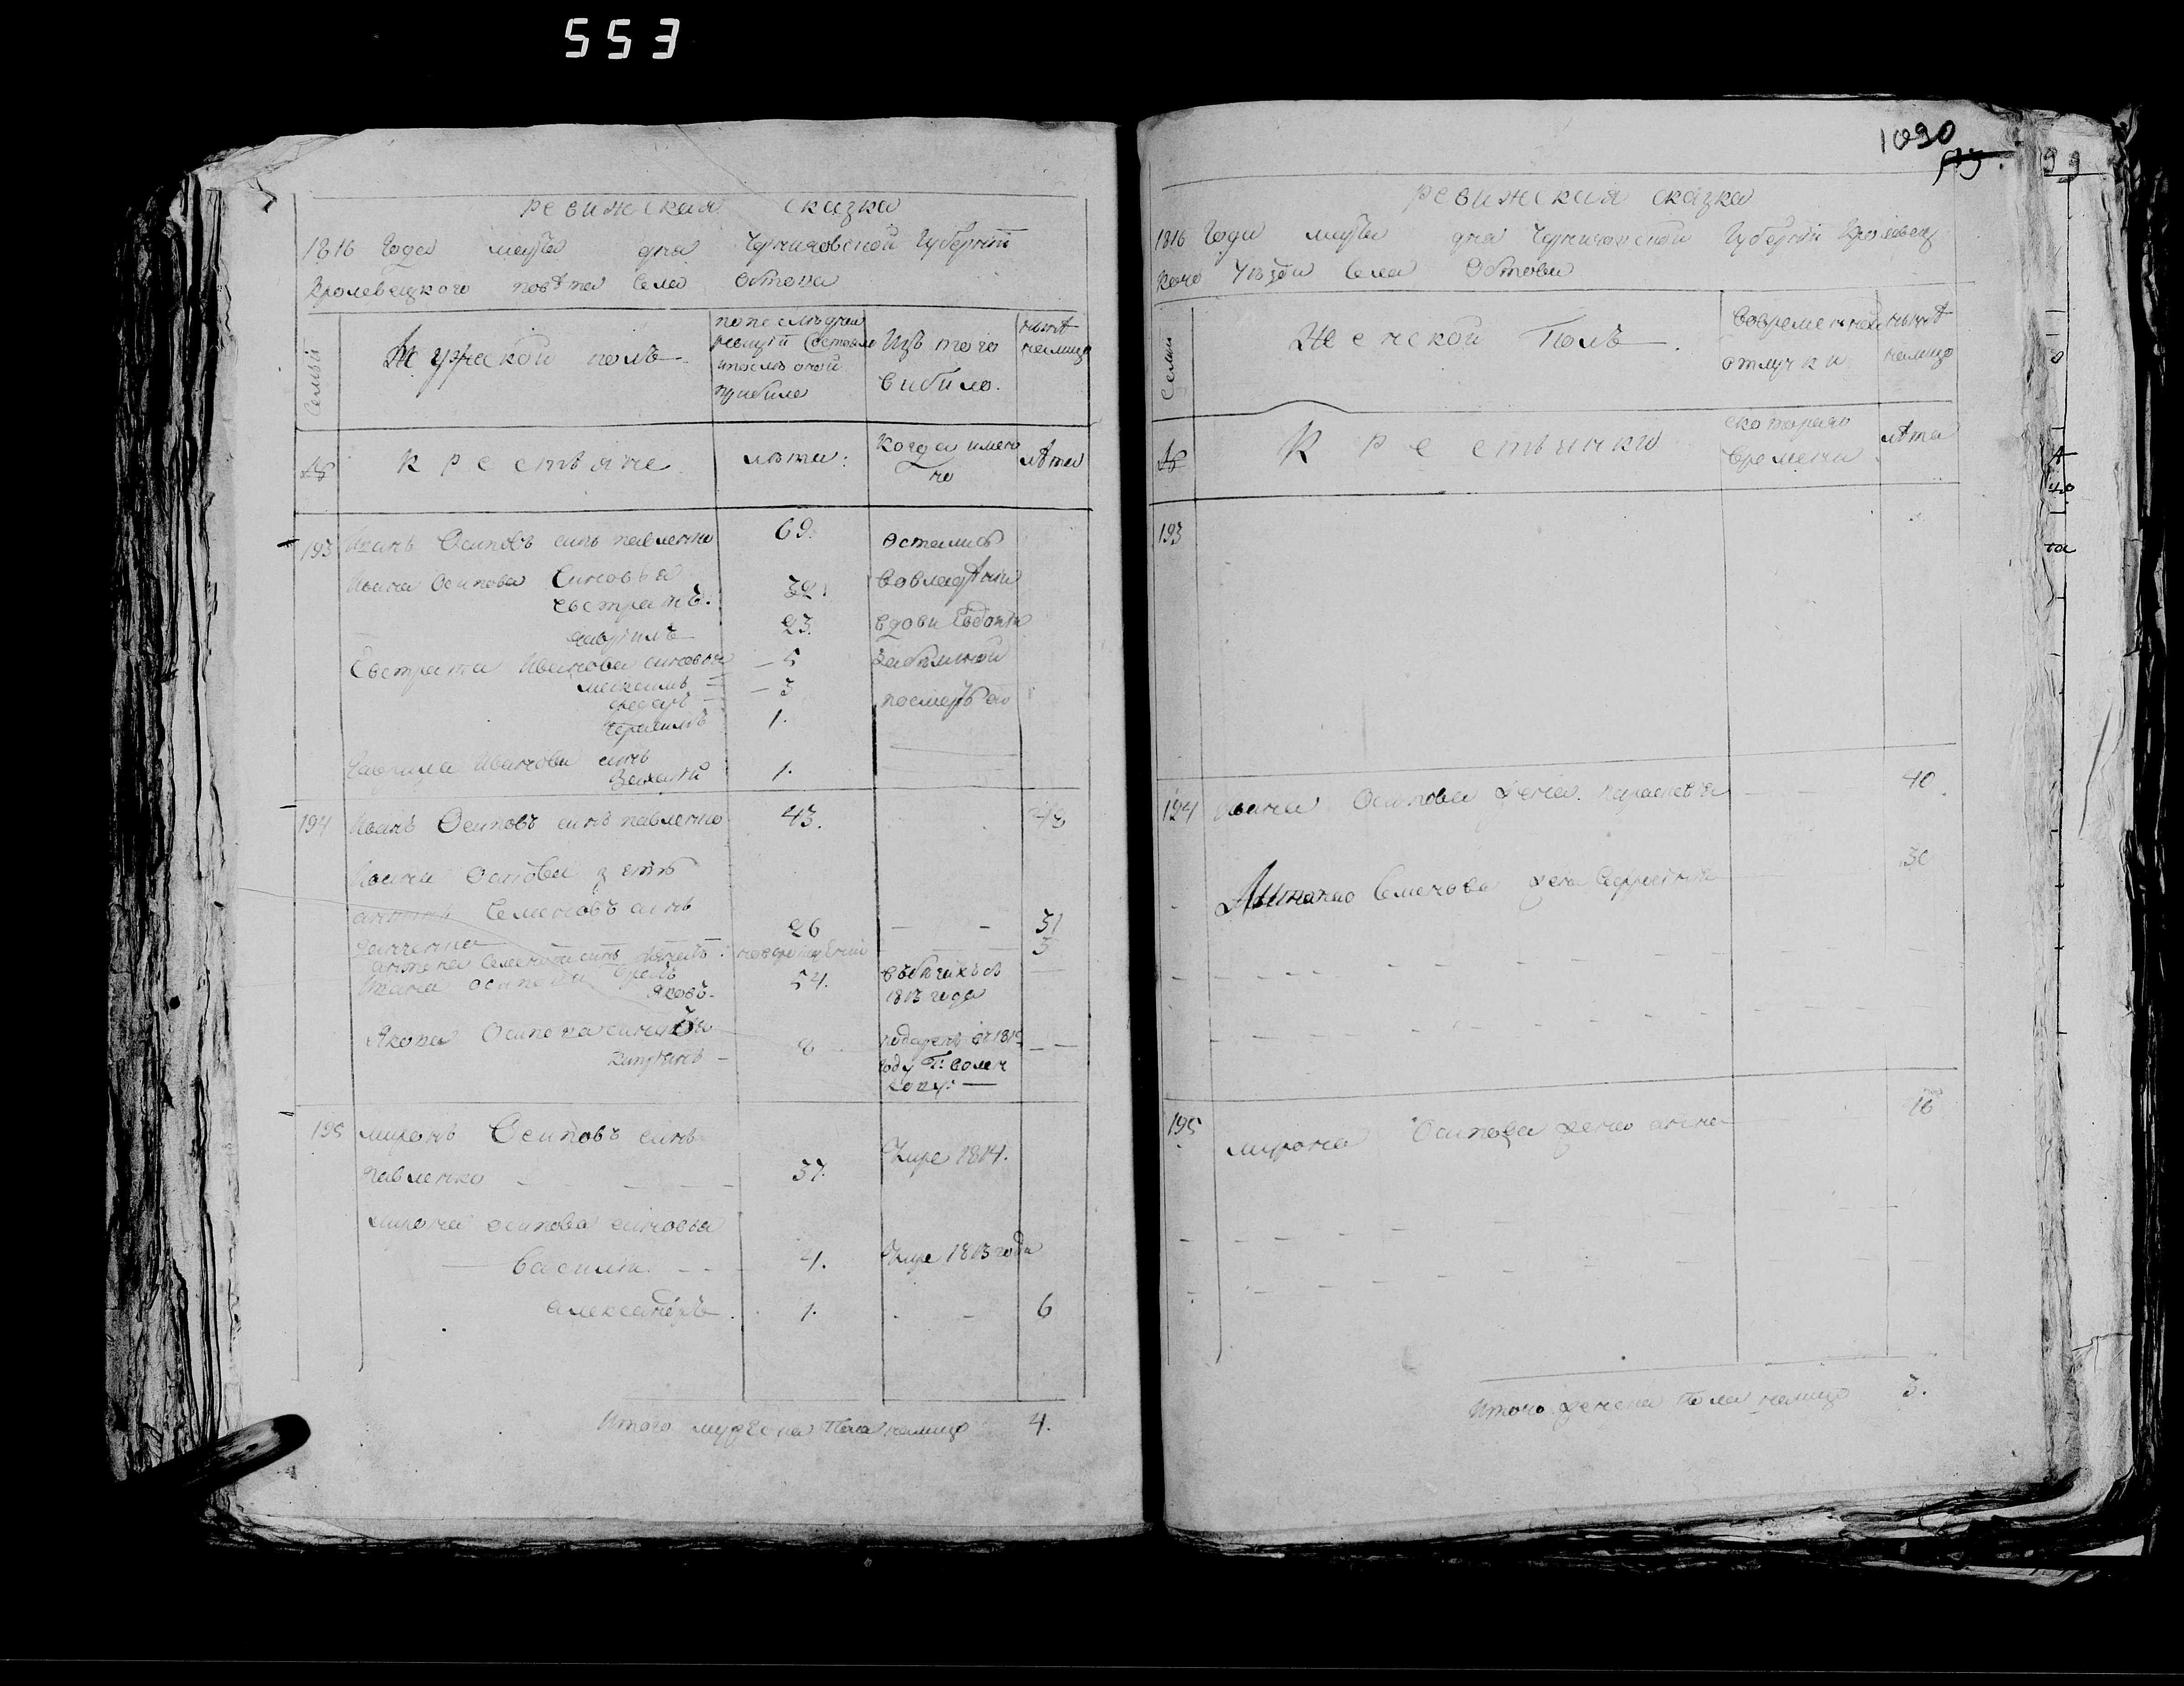 553
Ревижская сказка
1816 Года месяца дня Черниговской Губернїи
Кролевецкого повѣта Села Обтова
Семьи
Мужеской полъ
по последней ревизїи состояло и после оной прибило
Изъ того вибило.
нынѣ налицо
№
Крестьяне
лѣта.
Когда именно
лѣта
193 Иванъ Осиповъ синъ павленко 69.
Остались
Ивана Осипова Синовья
вовладѣнии
Евстратъ. 32.
Гаврилъ 23.
вдови Евдокїи
Евстрата Иванова синовья
Забѣлиной
максимъ 5
федоръ 3
Герасимъ 1.
Гаврила Иванова синъ
1.
194 Иванъ Осиповъ синъ павленко 43. 43
Ивана Осипова зять
антонъ Семеновъ синъ
26 - - 31
антона Семенова синъ новорожденний 5
Ивана Осипова братъ
Яковъ. 54.
въбегахъ съ
1813 года
Якова Осипова синъ
8
году
195 миронъ Осиповъ синъ
павленко 37. Умре 1814.
мирона осипова синовья
василїй 4. Умре 1813 года
александръ. 1. - - 6
Итого мужеска Пола налицо 4.
1090
Ревижская сказка
1816 Года месяца дня Черниговской Губернїи Кролевец
кого Уѣзда Села Обтова
Семьи
Женской Полъ.
Вовременной отлучки
нынѣ налицо
№
Крестьянки
скоторого времени
лѣта
193
194 Ивана Осипова жена параскевїя 40.
Антона Семенова жена 30
195 мирона Осипова жена анна
Итого женска Пола налицо 3.